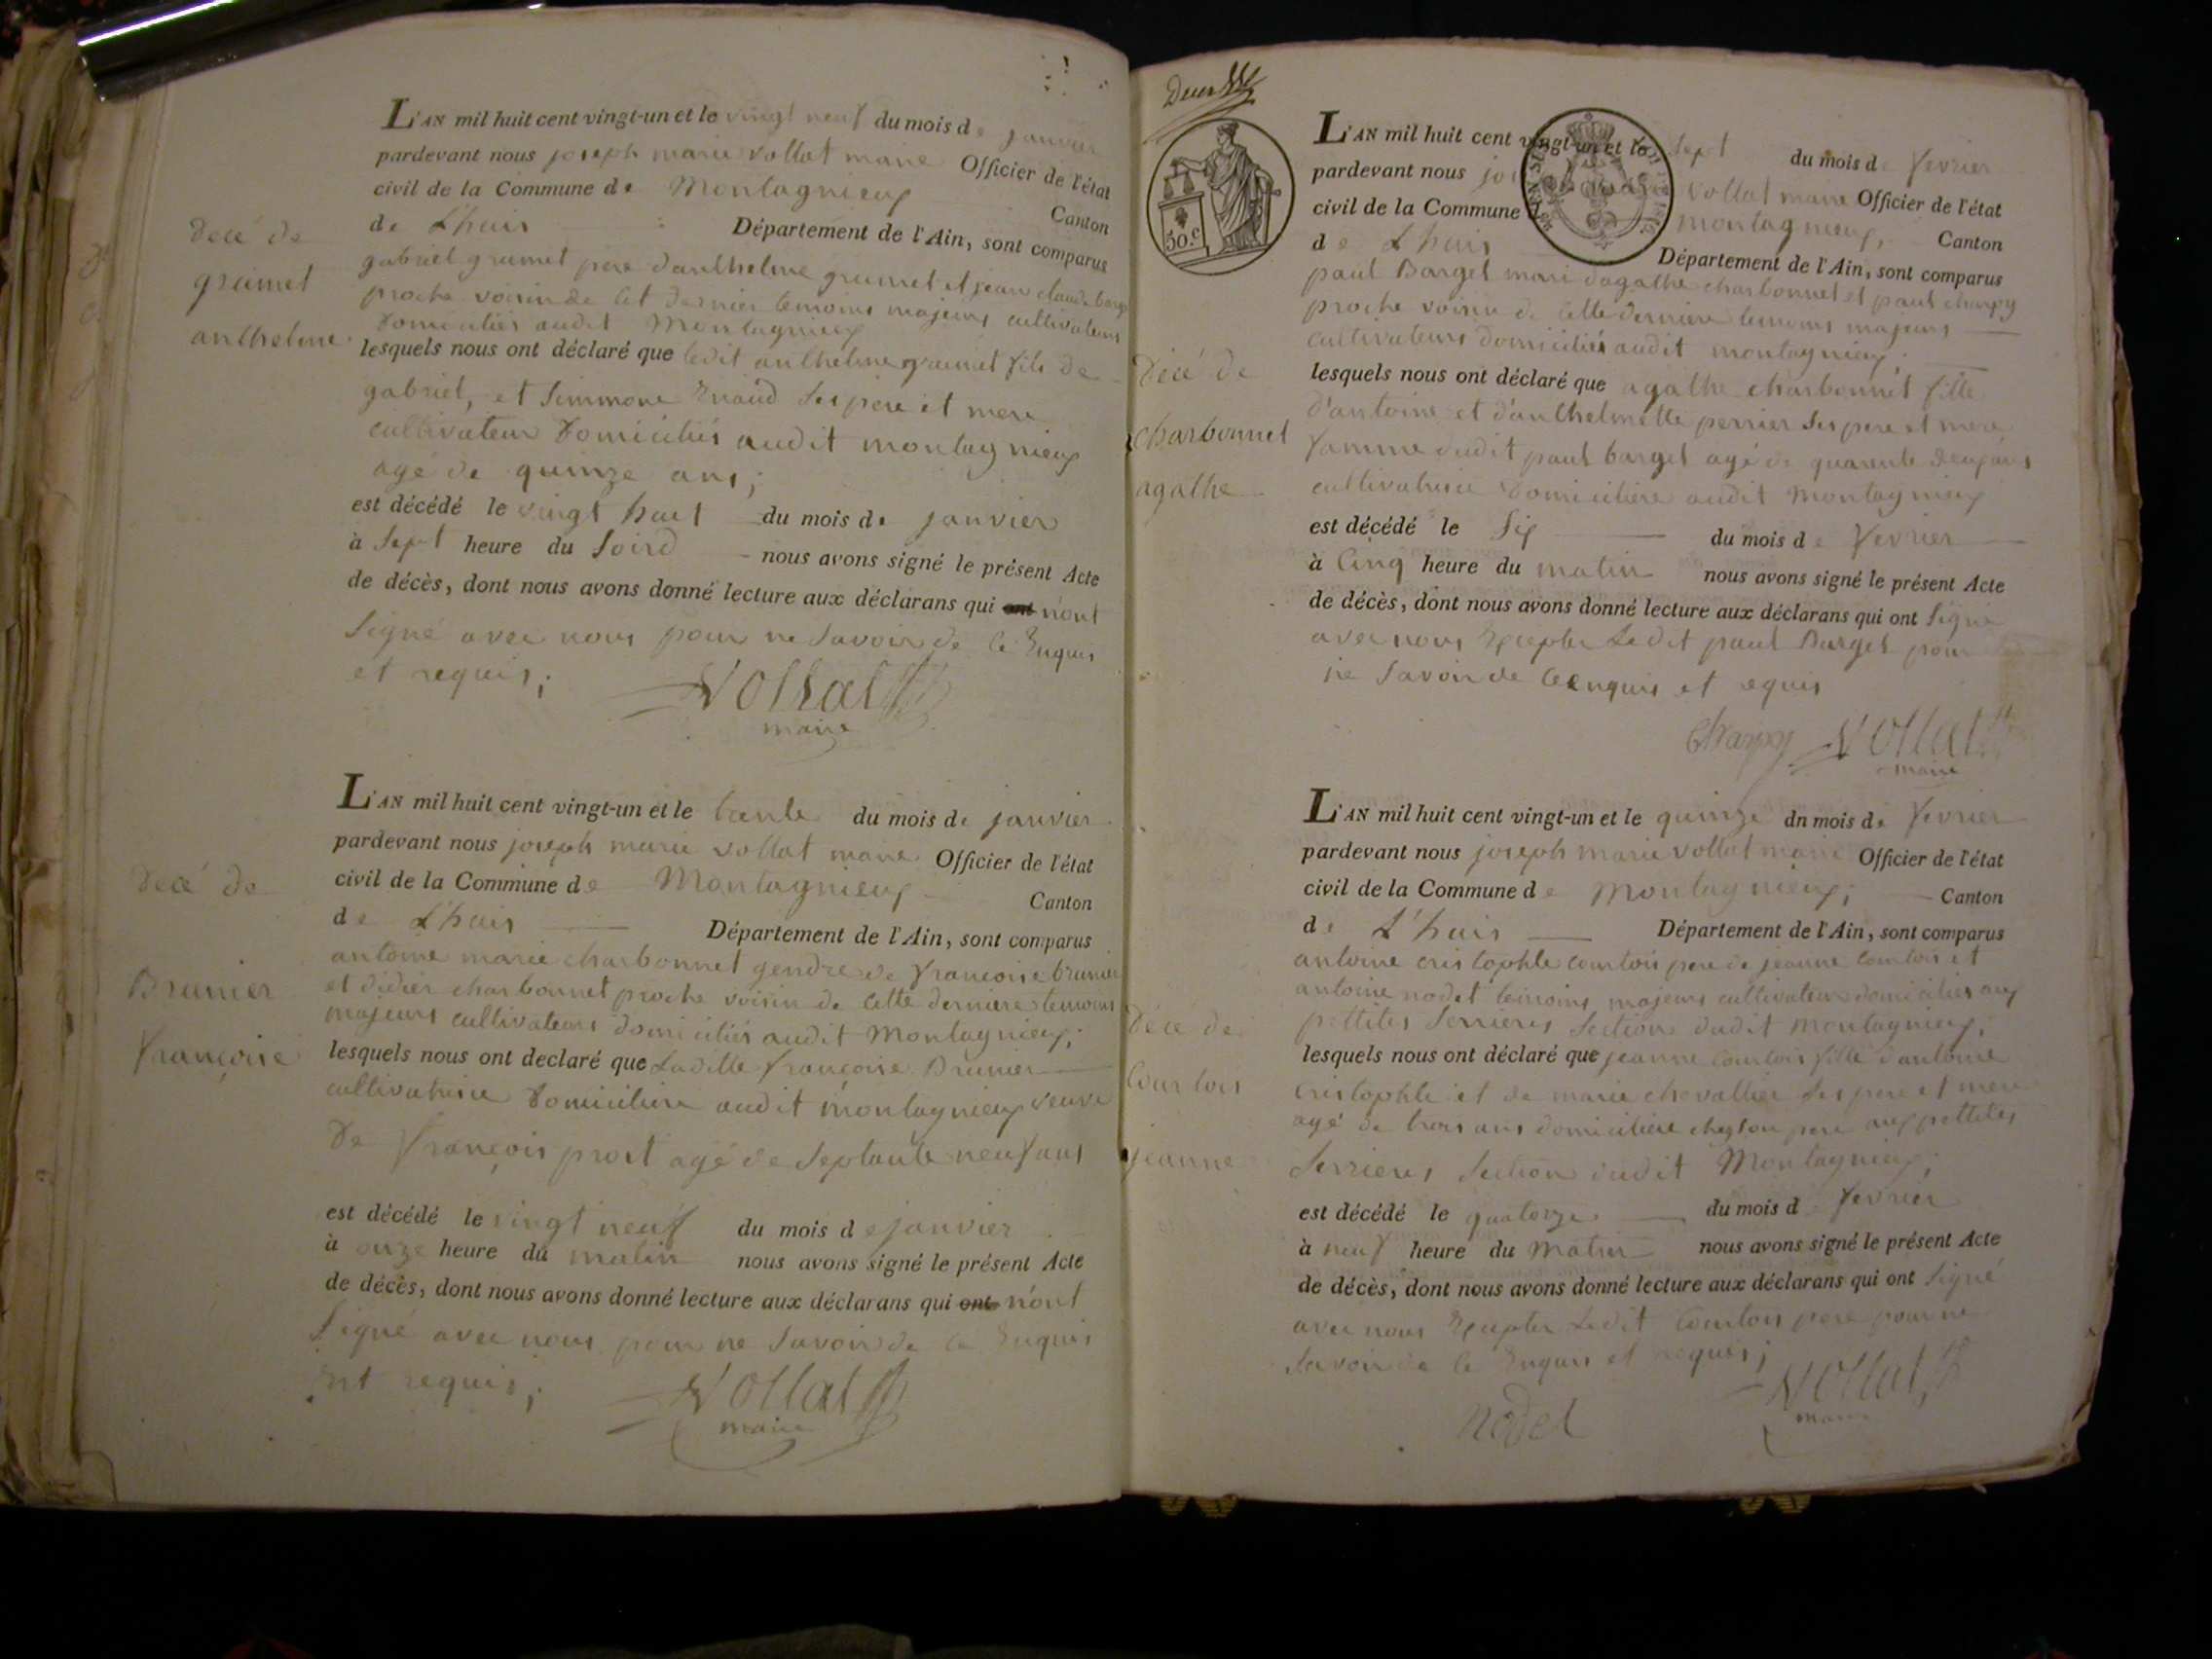 L'AN mil huit cent vingt-un et le vingt neuf du mois de janvier
pardevant nous joseph marie vollat maire Officier de l'état
civil de la Commune de Montagnieux Canton
de L'huis Département de l'Ain, sont comparus
gabriel grumet pere d'anthelme grumet et jean claude
proche voisin de cet dernier temoins majeurs cultivateurs
domiciliés audit Montagnieux
lesquels nous ont déclaré que ledit anthelme grumet fils de
gabriel, et Simmone Enaud ses pere et mere
cultivateur domiciliés audit montagnieux
agé de quinze ans;
est décédé le vingt huit du mois de janvier
à Sept heure du Soird nous avons signé le présent Acte
de décès, dont nous avons donné lecture aux déclarans qui ont n'ont
Signé avec nous pour ne Savoir de ce Enquis
et requis;
Vollat
maire
decé de
grumet
anthelme
L'AN mil huit cent vingt-un et le trente du mois de janvier
pardevant nous joseph marie vollat maire Officier de l'état
civil de la Commune de Montagnieux Canton
de L'huis Département de l'Ain, sont comparus
antoine marie charbonnet gendre de françoise brunier
et didier charbonnet proche voisin de cette derniere temoins
majeurs cultivateurs domiciliés audit Montagnieux;
lesquels nous ont declaré que Ladite françoise Brunier
cultivatrice domiciliere audit montagnieux veuve
de françois prost agé de Septante neuf ans
est décédé le vingt neuf du mois de janvier
à onze heure du matin nous avons signé le présent Acte
de décès, dont nous avons donné lecture aux déclarans qui ont n'ont
Signé avec nous pour ne Savoir de ce Enquis
Ent requis;
Vollat
maire
decé de
Brunier
françoise
50.c
L'AN mil huit cent vingt-un et le Sept du mois de fevrier
pardevant nous vollat maire Officier de l'état
civil de la Commune montagnieux, Canton
de L'huis Département de l'Ain, sont comparus
paul Barget mari d'agathe charbonnet et paul charpy
proche voisin de cette derniere temoins majeurs
cultivateurs domiciliés audit montagnieux;
lesquels nous ont déclaré que agathe charbonnet fille
d'antoine et d'anthelmette perrier ses pere et mere
famme dudit paul barget agé de quarente deux ans
cultivatrice domiciliere audit Montagnieux
est décédé le Six du mois de fevrier
à Cinq heure du matin nous avons signé le présent Acte
de décès, dont nous avons donné lecture aux déclarans qui ont Signé
avec nous Excepter Ledit paul Barget pour
ne Savoir de ce enquis et requis
Charpy Vollat
maire
Décé de
charbonnet
agathe
L'AN mil huit cent vingt-un et le quinze dn mois de fevrier
pardevant nous joseph marie vollat maire Officier de l'état
civil de la Commune de Montagnieux; Canton
de L'huis Département de l'Ain, sont comparus
antoine cristophle courtois pere de jeanne courtois et
antoine nodet temoins majeurs cultivateurs domiciliés aux
pettites Serrieres Section dudit Montagnieux;
lesquels nous ont déclaré que jeanne Courtois fille d'antoine
cristophle et de marie chevallier ses pere et mere
agé de trois ans domiciliere chez son pere aux pettites
Serrieres Section dudit Montagnieux;
est décédé le quatorze du mois d fevrier
à neuf heure du Matin nous avons signé le présent Acte
de décès, dont nous avons donné lecture aux déclarans qui ont Signé
avec nous Excepter Ledit Courtois pere pour ne
Savoir de ce Enquis et requis;
nodet
Vollat
maire
Décé de
Courtois
jeanne